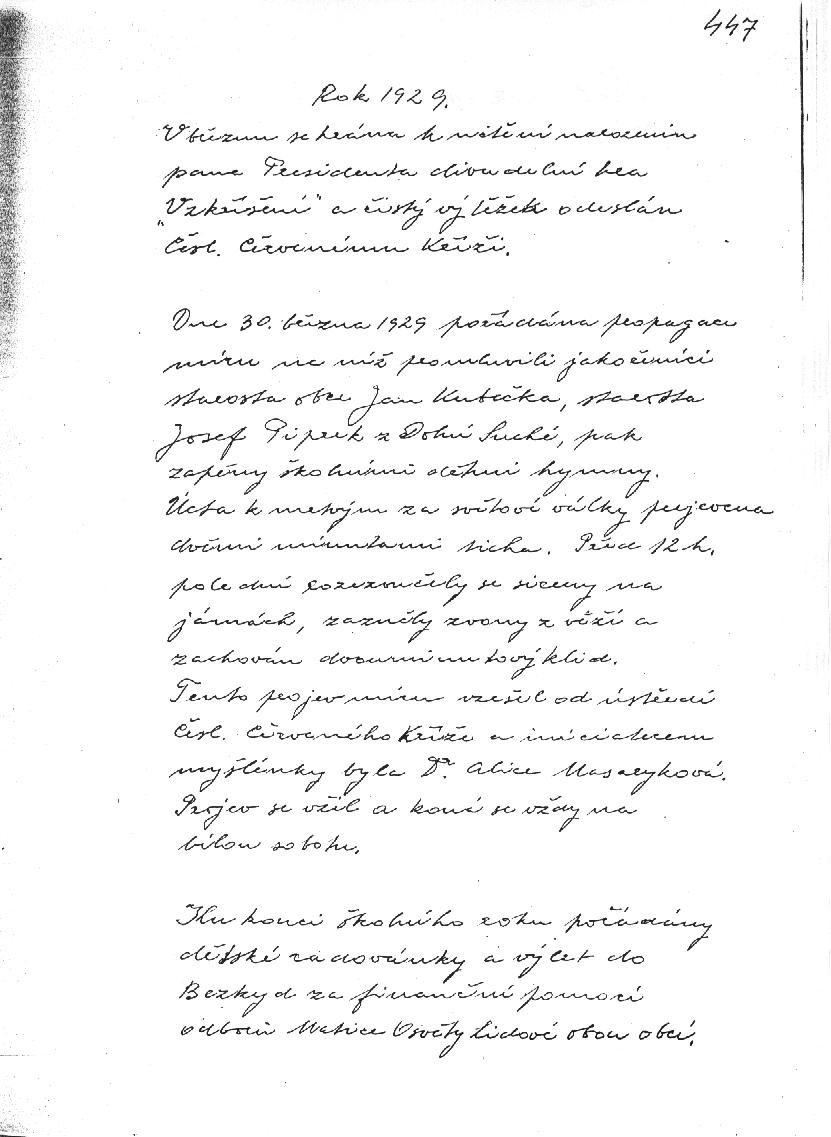 447
Rok 1929.
V březnu sehrána k uctění narozenin
pana Presidenta divadelní hra
„Vzkříšení" a čistý výtěžek odeslán
Čsl. Červenému Kříži.
Dne 30. března 1929 pořádána propagace
míru na níž promluvili jako činíci
starosta obce Jan Kubečka, starosta
Josef Piprek z Dolní Suché, pak
zapěny školními dětmi hymny.
Úcta k mrtvým za světové války projevena
dvěmi minutami ticha. Před 12 h.
polední rozezvučely se sireny na
jámách, zazněly zvony z věží a
zachován dvouminutový klid.
Tento projev míru vzešel od ústředí
Čsl. Červeného Kříže a iniciatorem
myšlénky byla Dr. Alice Masaryková.
Projev se vžil a koná se vždy na
bílou sobotu.
Ku konci školního roku pořádány
dětské radovánky a výlet do
Bezkyd za finanční pomoci
odborů Matice Osvěty Lidové obou obcí.